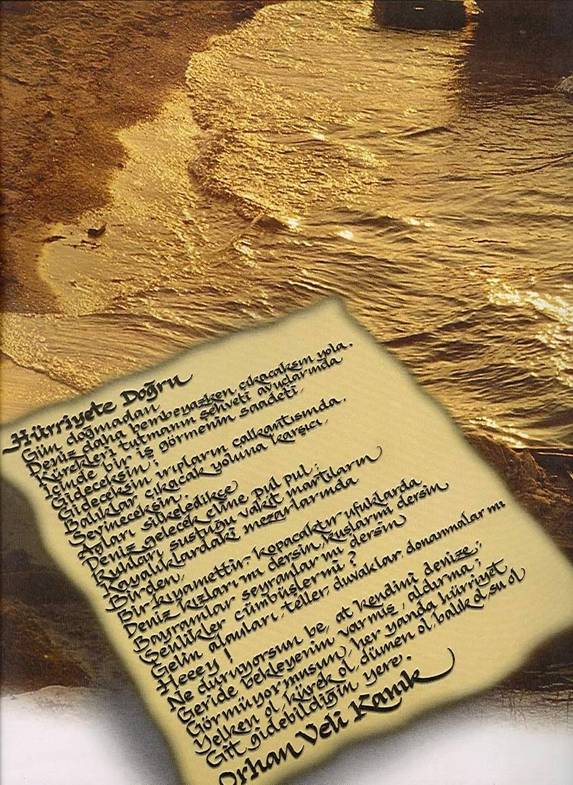 Hürriyete Doğru
Gün doğmadan,
Deniz daha bembeyazken çıkacaksın yola.
Kürekleri tutmanın şehveti avuçlarında
İçinde bir iş görmenin saadeti,
Gideceksin;
Gideceksin ırıpların çalkantısında.
Balıklar çıkacak yoluna karşıcı,
Sevineceksin.
Ağları silkeledikçe
Deniz gelecek eline pul pul;
Ruhları sustuğu vakit martıların
Kayalıklardaki mezarlarında
Birden,
Bir kıyamettir kopacaktır ufuklarda
Deniz kızları mı dersin, kuşlar mı dersin
Bayramlar seyranlar mı dersin
Şenlikler cümbüşler mi?
Gelin alayları, teller, duvaklar, donanmalar mı
Heeey!
Ne duruyorsun be, at kendini denize;
Geride bekleyenin varmış, aldırma;
Görmüyormusun, her yanda hürriyet
Yelken ol, kürek ol, dümen ol, balık ol, su ol
Git gidebildiğin yere.
Orhan Veli Kanık